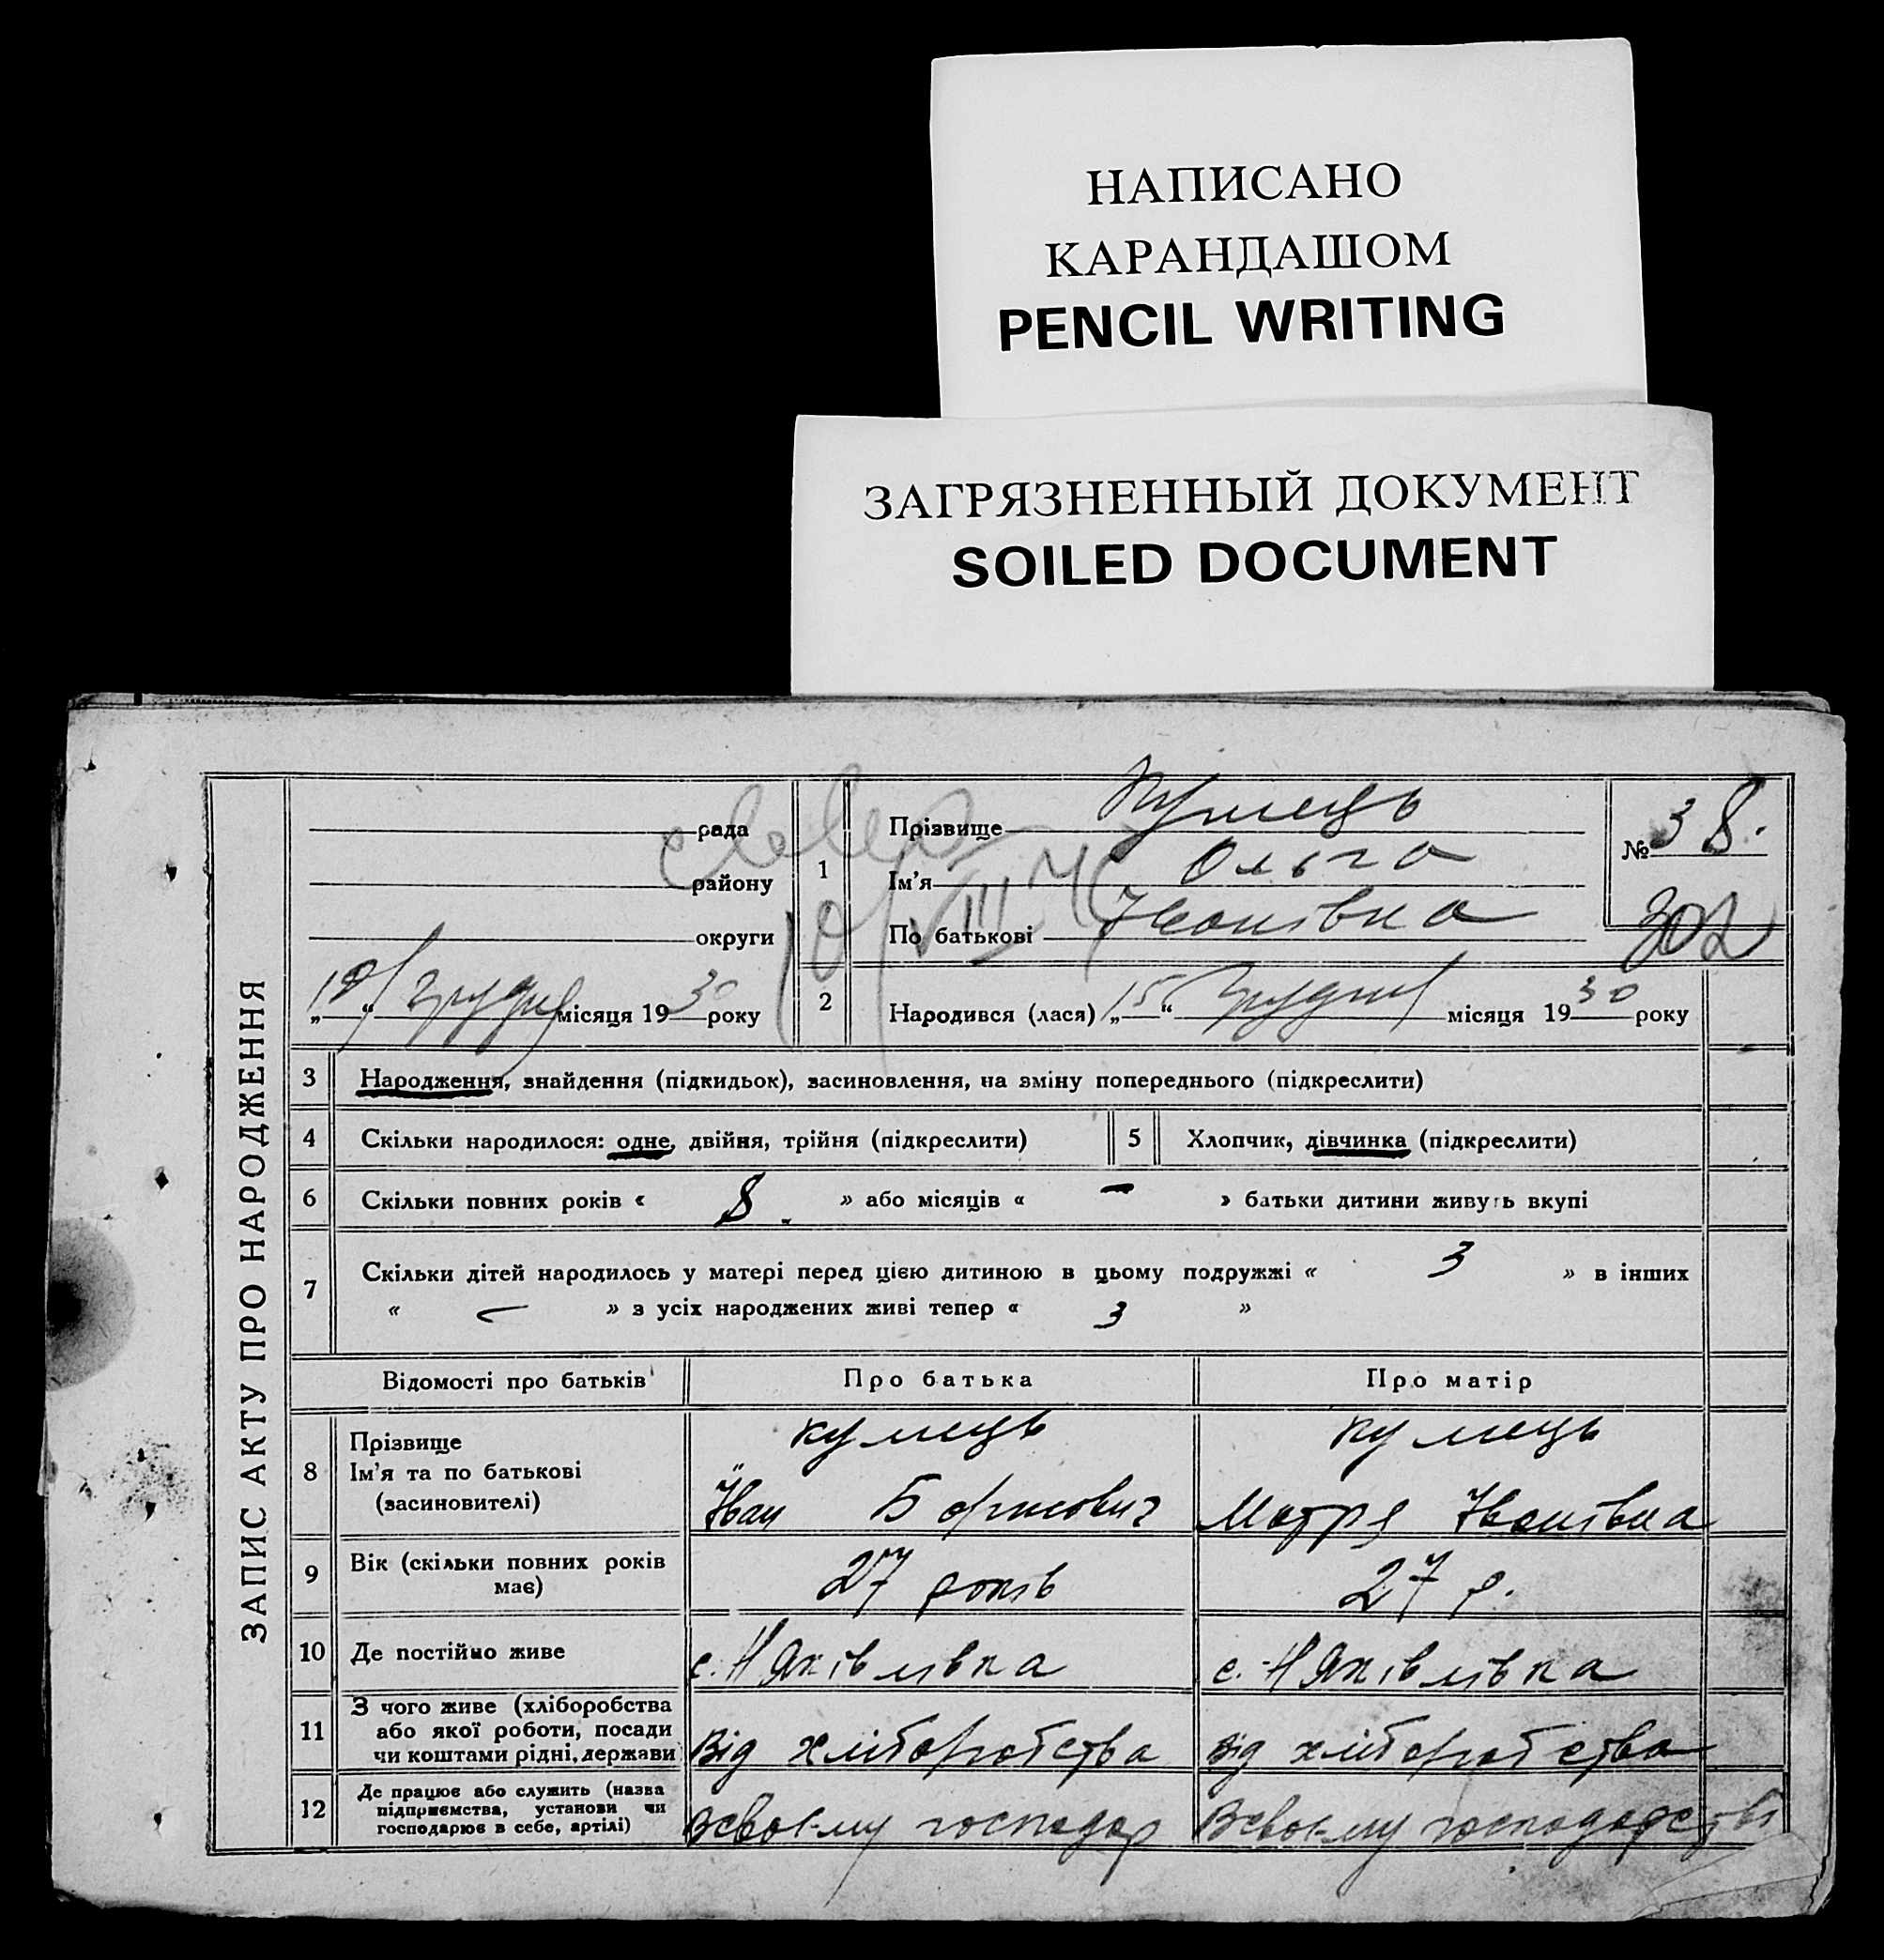 НАПИСАНО
КАРАНДАШОМ
PENCIL WRITING
ЗАГРЯЗНЕННЫЙ ДОКУМЕНТ
SOILED DOCUMENT
ЗАПИС АКТУ ПРО НАРОДЖЕННЯ
рада
району
округи
„19“ грудня місяця 1930 року
1
Прізвище Кумець
Ім'я Ольга
По батькові Іванівна
№ 38.
302
10/VIII
2
Народився (лася) „15“ грудня місяця 1930 року
3 Народження, знайдення (підкидьок), засиновлення, на зміну попереднього (підкреслити)
4 Скільки народилося: одне, двійня, трійня (підкреслити) 5 Хлопчик, дівчинка (підкреслити)
6 Скільки повних років « 8. » або місяців « — » батьки дитини живуть вкупі
7 Скільки дітей народилось у матері перед цією дитиною в цьому подружжі « 3 » в інших
« – » з усіх народжених живі тепер « 3 »
Відомості про батьків Про батька Про матір
8 Прізвище Кумець Кумець
Ім'я та по батькові
(засиновителі) Іван Борисович Мотря Іванівна
9 Вік (скільки повних років має) 27 років 27 р.
10 Де постійно живе с. Н Яківлівка с. Н Яківлівка
11 З чого живе (хліборобства
або якої роботи, посади
чи коштами рідні, держави Від хліборобства від хліборобства
12 Де працює або служить (назва
підприємства, установи чи
господарює в себе, артілі) Всвоєму господар Всвоєму господарстві